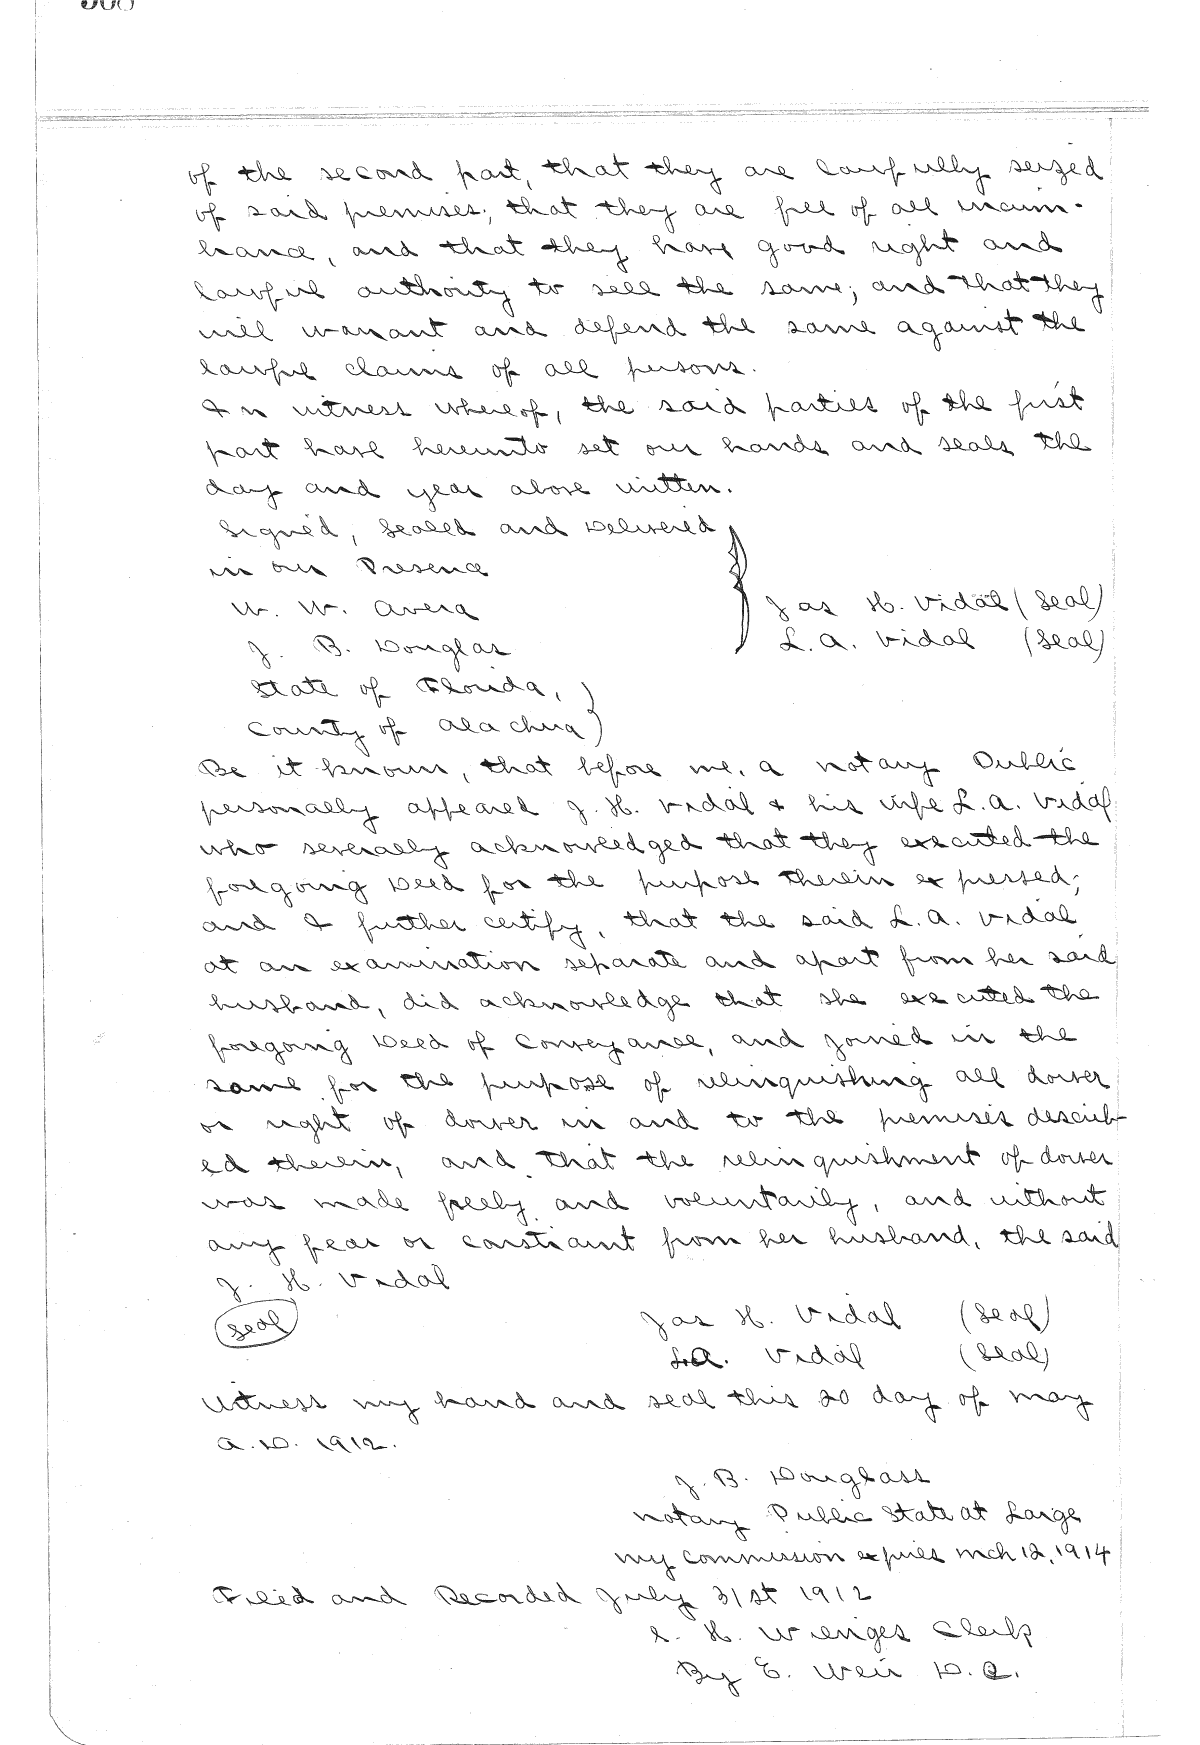 of the second part, that they are lawfully seized
of said premises; that they are free of all incum-
brance, and that they have good right and
lawful authority to sell the same; and that they
will warrant and defend the same against the
lawful claims of all persons.
In witness whereof, the said parties of the first
part have hereunto set our hands and seals the
day and year above written.
Signed, Sealed and Delivered
in our Presence
W. W. Avera
J. B. Douglas
Jas H. Vidal (Seal)
L. A. Vidal (Seal)
State of Florida,
County of Alachua
Be it known, that before me, a notary Public
personally appeared J. H. Vidal + his wife L. A. Vidal
who severally acknowledged that they executed the
foregoing Deed for the purpose therein expressed;
and I further certify, that the said L. A. Vidal
at an examination separate and apart from her said
husband, did acknowledge that she executed the
foregoing Deed of Conveyance, and joined in the
same for the purpose of relinquishing all dower
or right of dower in and to the premises describ-
ed therein, and that the relinquishment of dower
was made freely and voluntarily, and without
any fear or constraint from her husband, the said
J. H. Vidal
Seal
Jas H. Vidal (Seal)
L.A. Vidal (Seal)
Witness my hand and seal this 20 day of May
A.D. 1912.
J. B. Douglass
Notary Public State at Large
my commission expires Mch 12, 1914
Filed and Recorded July 31st 1912
S. H. Wienges Clerk
By E. Weir D.C.